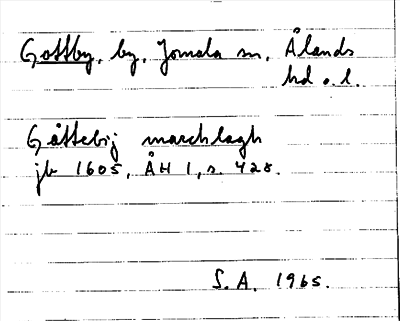 Gottby, by, Jomala sn, Ålands
hd o. l.
Gåttebÿ marchlagh
jb 1605, ÅH 1, s. 428.
S. A. 1965.